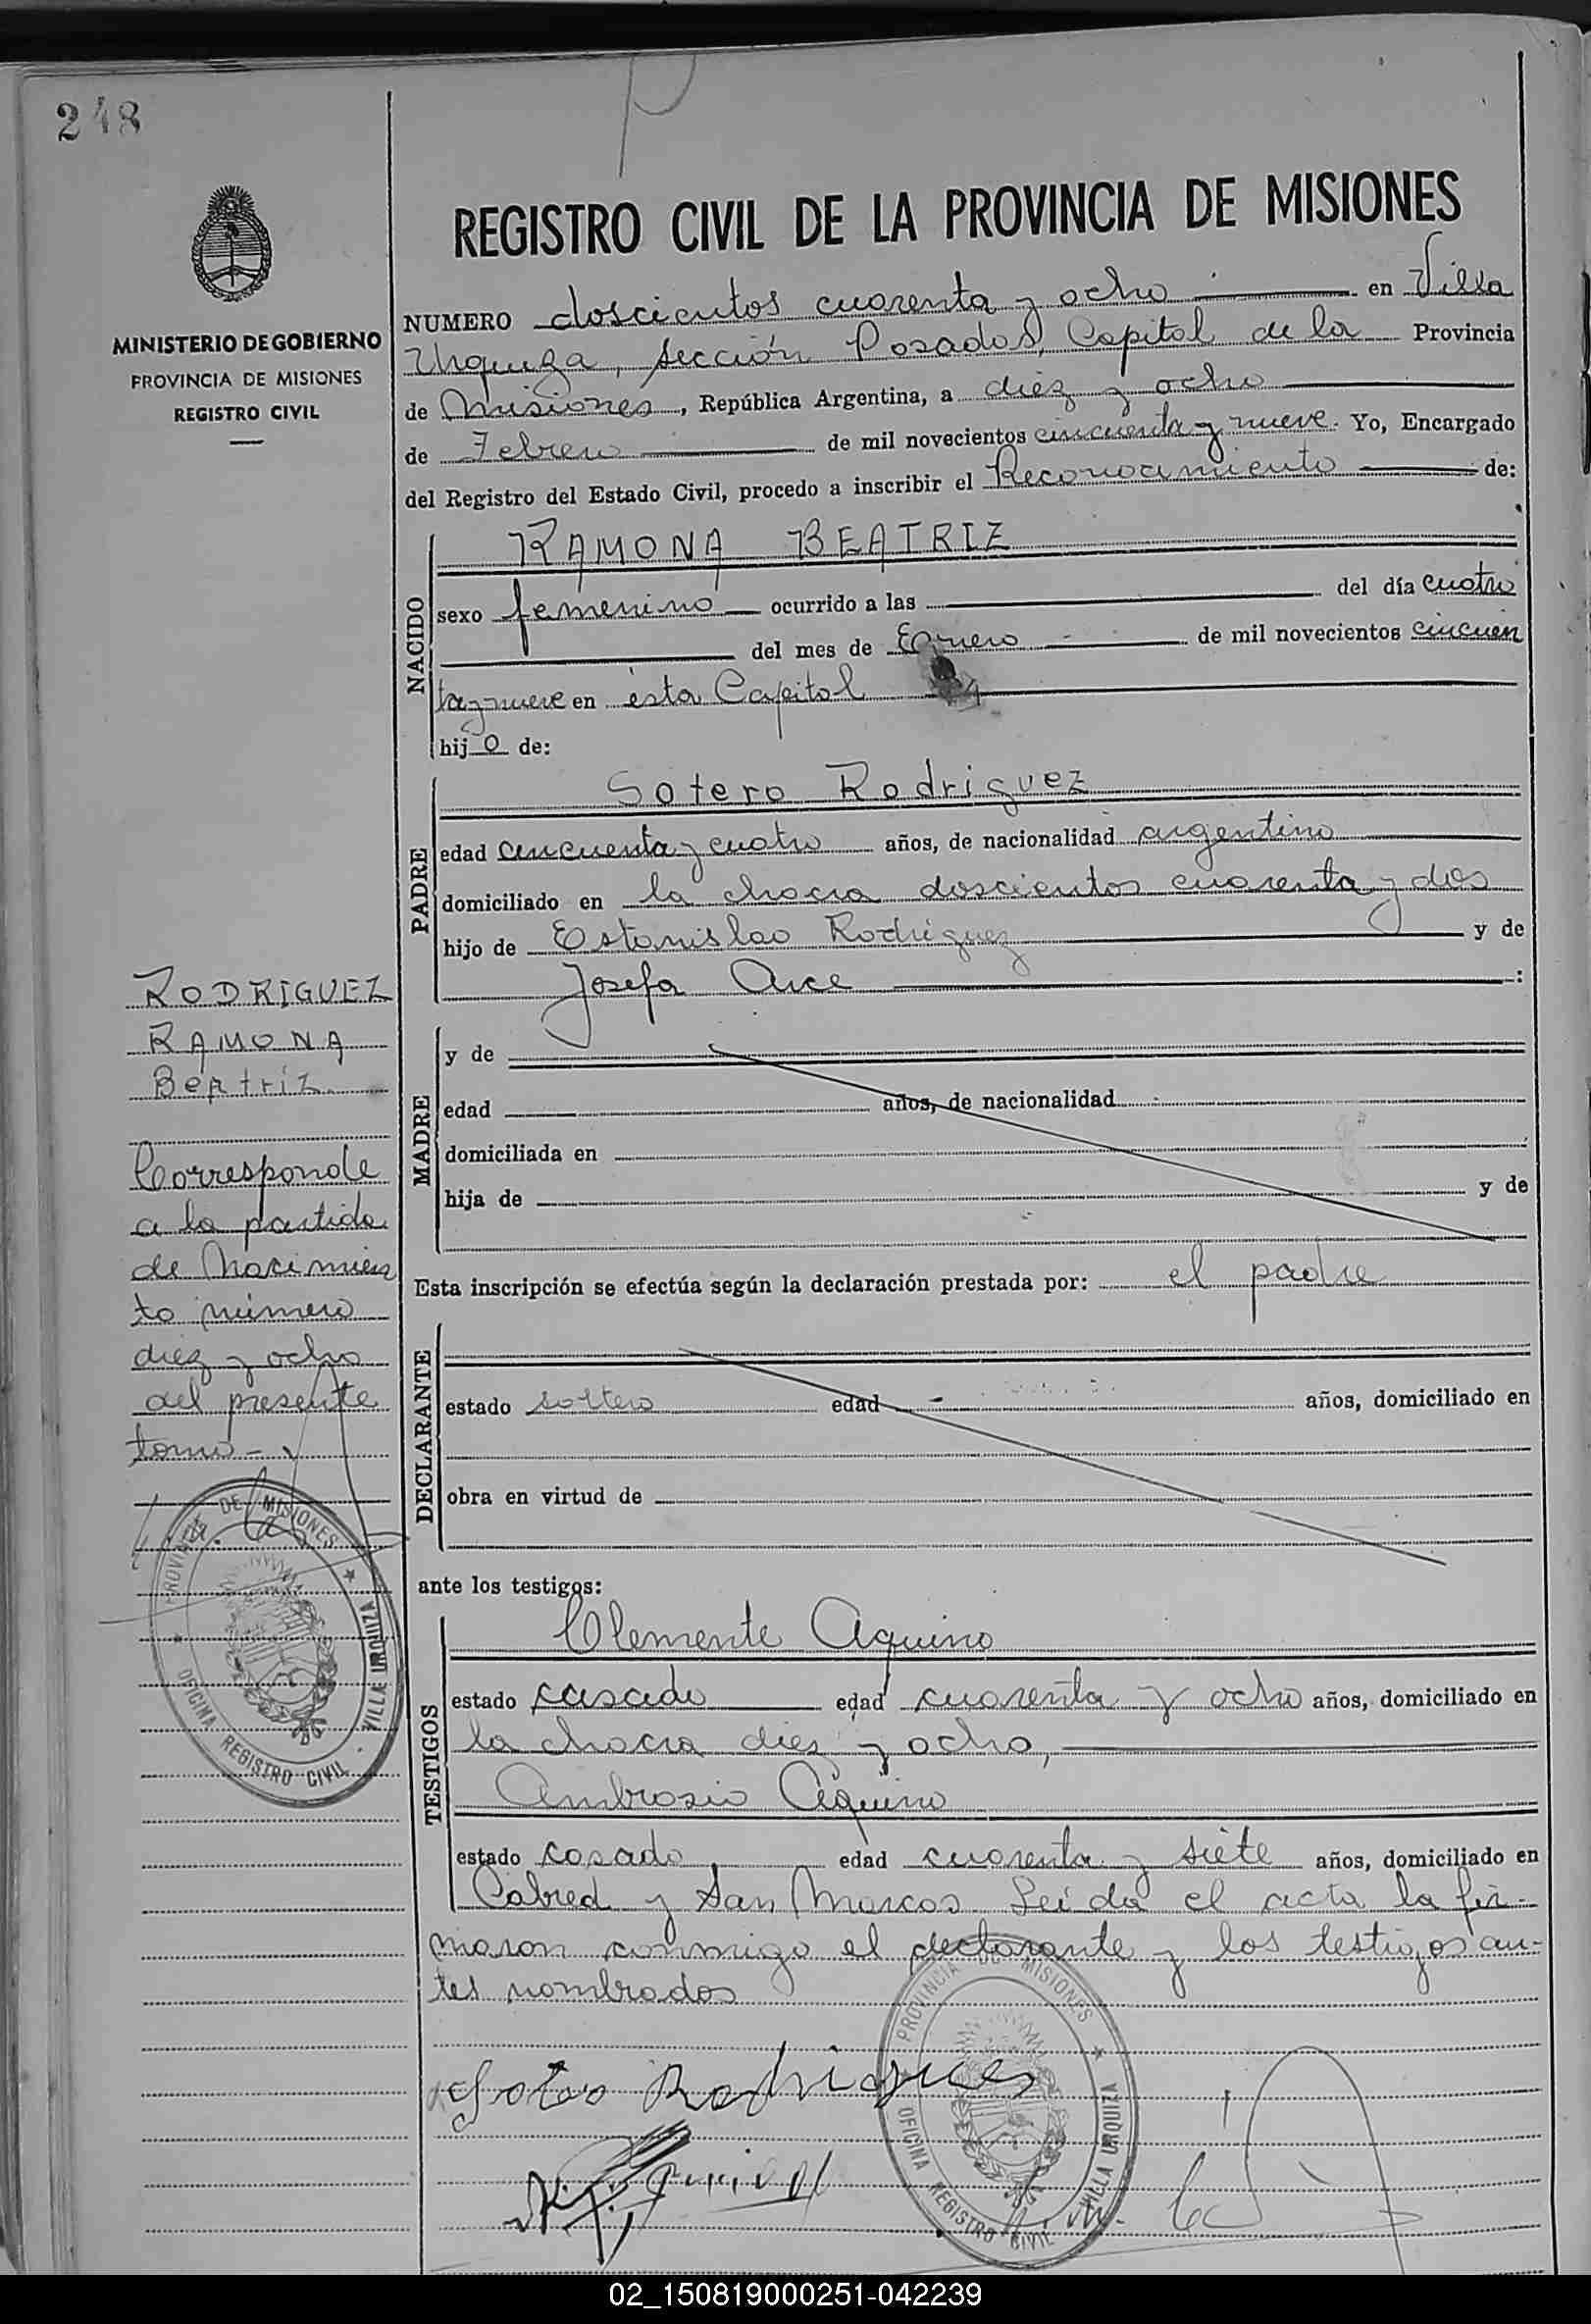 248
REGISTRO CIVIL DE LA PROVINCIA DE MISIONES
MINISTERIO DE GOBIERNO
PROVINCIA DE MISIONES
REGISTRO CIVIL
NUMERO doscientos cuarenta y ocho en Villa
Urquiza, sección Posadas, Capital de la Provincia
de Misiones, República Argentina, a diez y ocho
de Febrero de mil novecientos cincuenta y nueve. Yo, Encargado
del Registro del Estado Civil, procedo a inscribir el Reconocimiento de:
NACIDO
RAMONA BEATRIZ
sexo femenino ocurrido a las del día cuatro
del mes de Enero de mil novecientos cincuen
ta y nueve en ésta Capital
hij o de:
PADRE
Sotero Rodriguez
edad cincuenta y cuatro años, de nacionalidad argentino
domiciliado en la chacra doscientos cuarenta y dos
hijo de Estanislao Rodriguez y de
Josefa Arce :
MADRE
y de
edad años, de nacionalidad
domiciliada en
hija de y de
Esta inscripción se efectúa según la declaración prestada por: el padre
DECLARANTE
estado soltero edad años, domiciliado en
obra en virtud de
ante los testigos:
TESTIGOS
Clemente Aquino
estado casado edad cuarenta y ocho años, domiciliado en
la chacra diez y ocho,
Ambrosio Aquino
estado casado, edad cuarenta y siete años, domiciliado en
Cabred y San Marcos Leída el acta la fir-
maron conmigo el declarante y los testigos an-
tes nombrados
Sotero Rodrigues
RODRIGUEZ
RAMONA
Beatriz
Corresponde
a la partida
de Nacimien
to número
diez y ocho
del presente
tomo-
PROVINCIA DE MISIONES
OFICINA REGISTRO CIVIL . VILLA URQUIZA
PROVINCIA DE MISIONES
OFICINA REGISTRO CIVIL VILLA URQUIZA
02_150819000251-042239